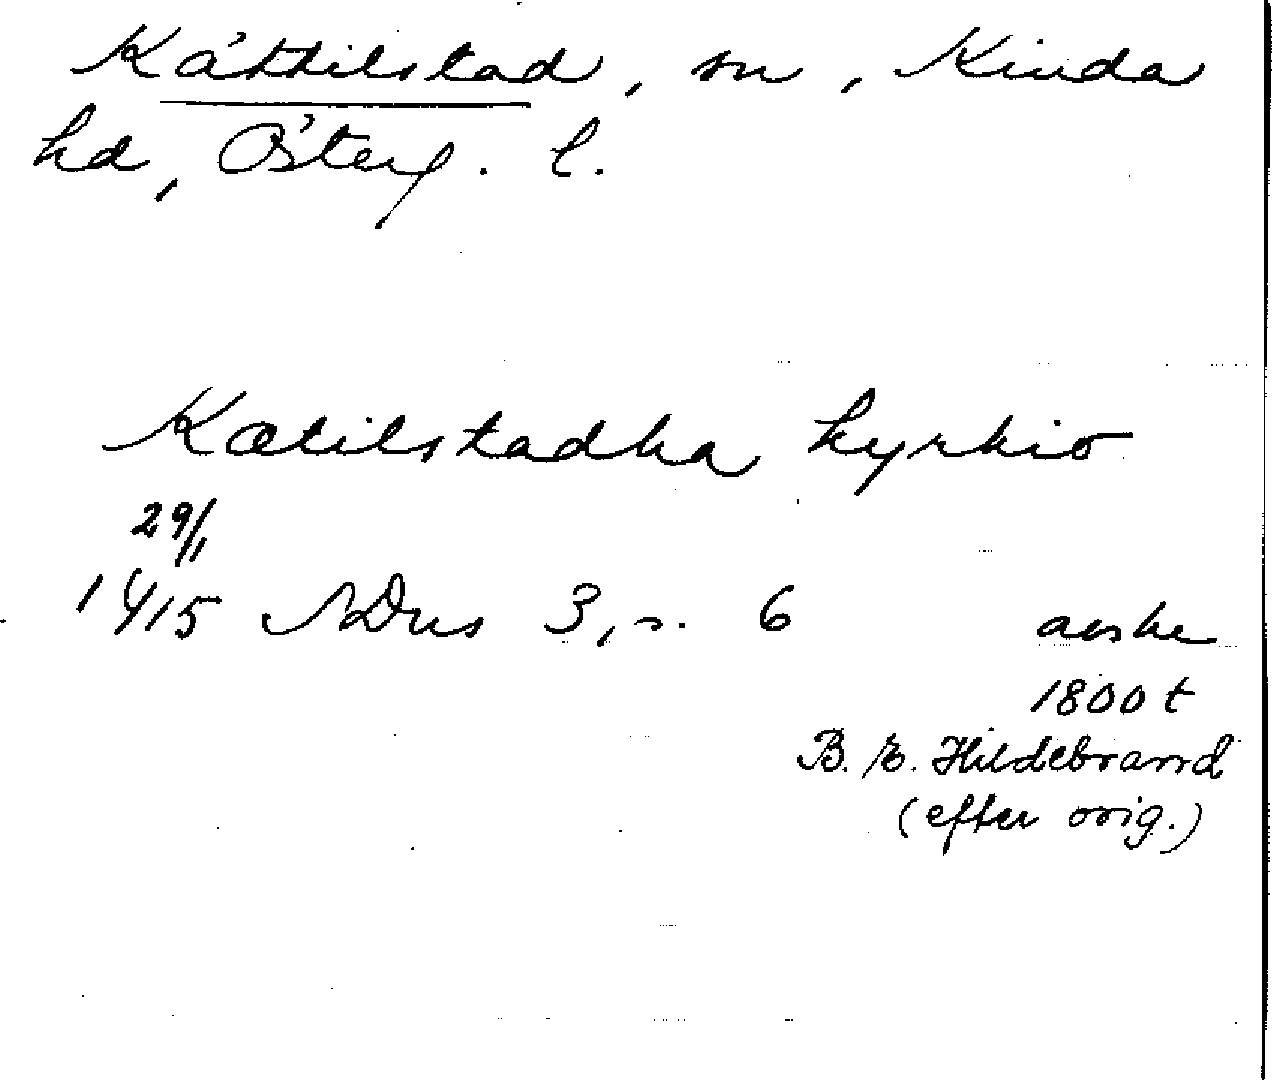 Kättilstad, sn, Kinda
hd, Österg. l.
Kætilstadha kyrkio
29/1
1415 NDns 3, s. 6
avskr
1800 t
B. E. Hildebrand
(efter orig.)